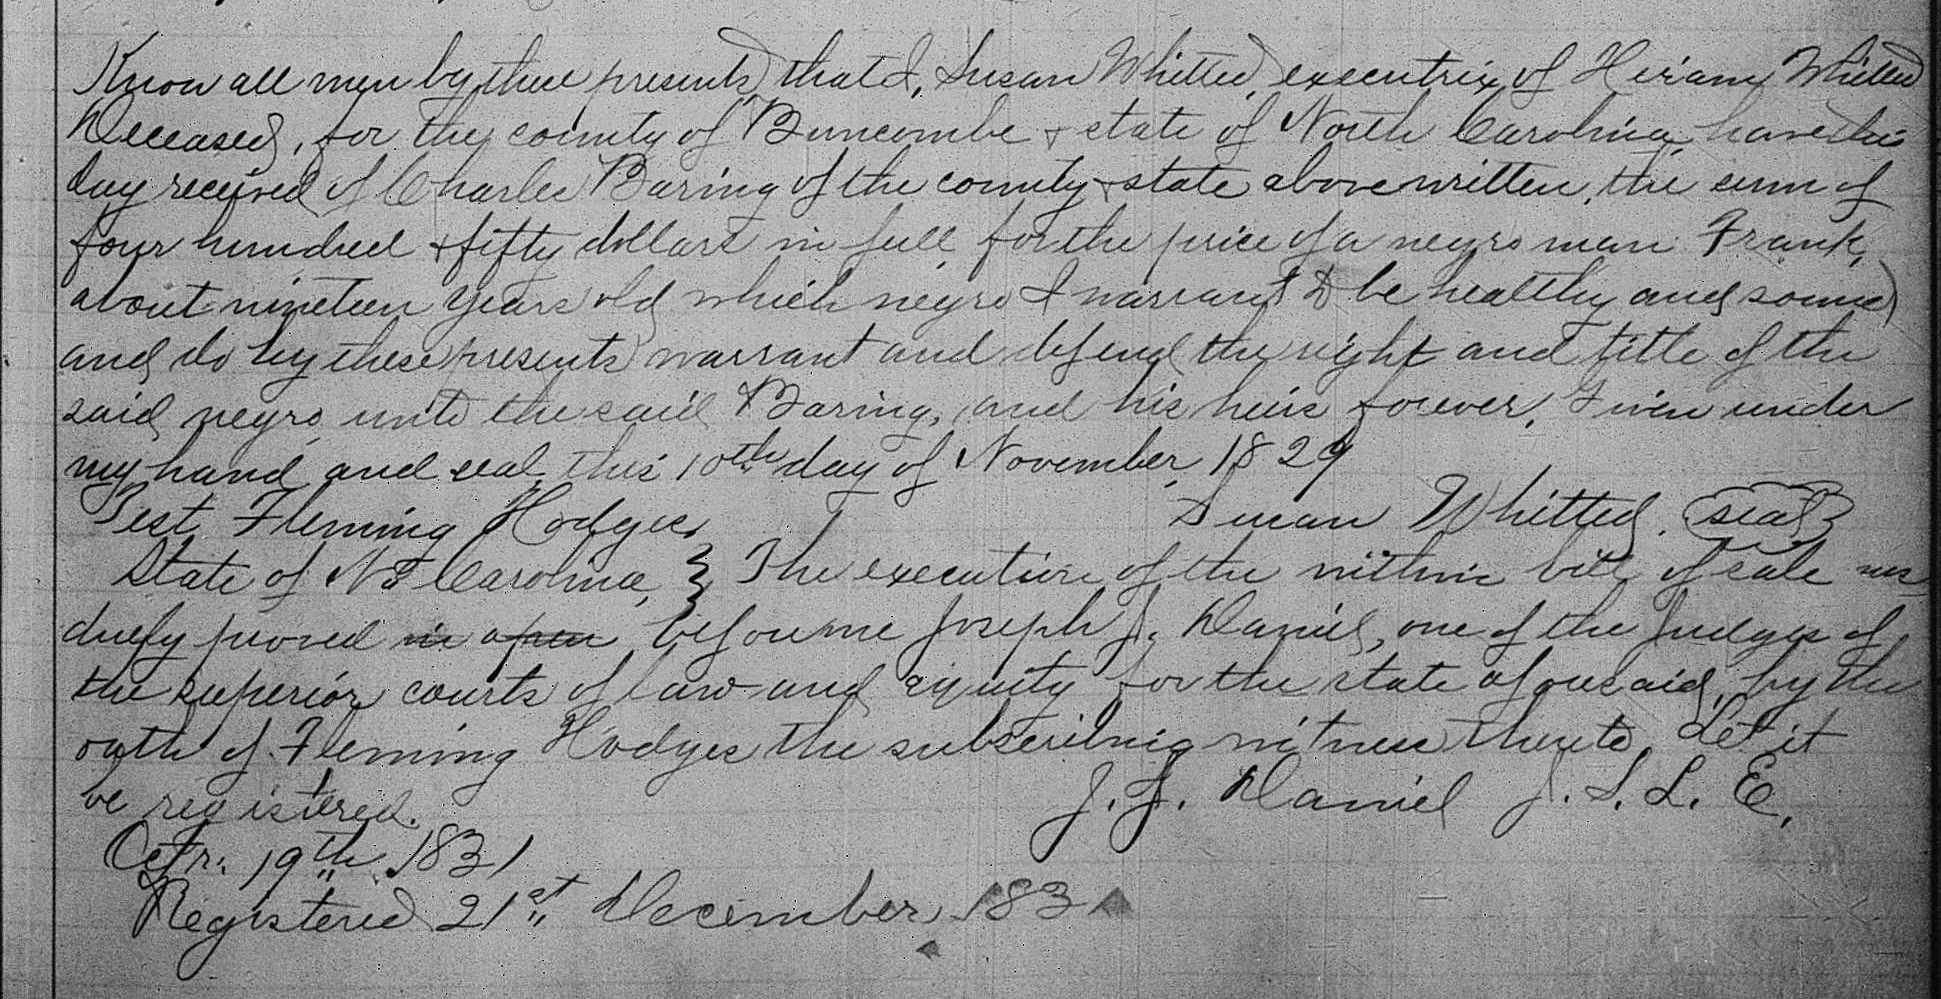 Know all men by these presents, that I, Susan Whitted, executrix of Hiram Whitted
Deceased, for the county of Buncombe & state of North Carolina, have this
day received of Charles Baring of the county & state above written, the sum of
four hundred & fifty dollars in full for the price of a negro man Frank,
about nineteen years old which negro I warrant to be healthy and sound
and do by these presents warrant and defend the right and title of the
said negro unto the said Baring, and his heirs forever, Given under
my hand and seal this 10th day of November, 1829
Test, Fleming Hodges Susan Whitted. seal
State of No Carolina, } The execution of the within bill of sale was
duely proved in open before me Joseph J. Daniel, one of the Judges of
the superior courts of law and equity for the state aforesaid, by the
oath of Fleming Hodges the subscribing witness thereto, Let it
be registered. J. J. Daniel J. S. L. E.
Octr. 19th 1831
Registered 21st December 1831